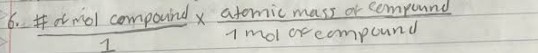 6. # of mol compound x atomic mass of compound
1 1 mol of compound